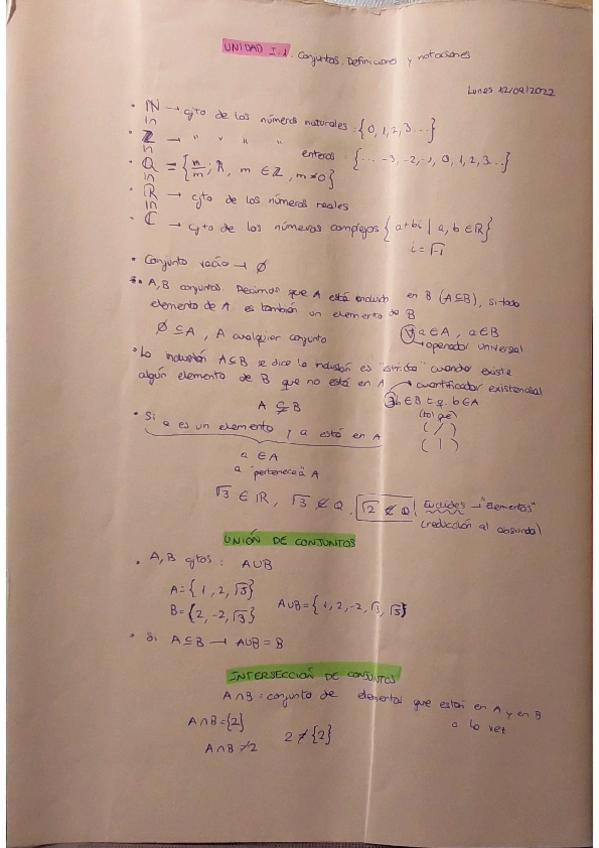 UNIDAD I.1. Conjuntos. Definiciones y notaciones
Lunes 12/09/2022
• ℕ → cjto de los números naturales = {0, 1, 2, 3...}
• ℤ → " " " " enteros {... -3, -2, -1, 0, 1, 2, 3...}
• ℚ = {n/m ; n, m ∈ ℤ, m ≠ 0}
• ℝ → cjto de los números reales
• ℂ → cjto de los números complejos {a+bi | a, b ∈ ℝ}
i = √-1
• Conjunto vacío → ∅
• A, B conjuntos. Decimos que A está incluido en B (A ⊆ B), si todo
elemento de A es también un elemento de B
∅ ⊆ A, A cualquier conjunto
∀ a ∈ A, a ∈ B
→ operador universal
• La inclusión A ⊆ B se dice la inclusión es "estricta" cuando existe
algún elemento de B que no está en A
→ cuantificador existencial
A ⊊ B
∃ b ∈ B t.q. b ∉ A
(tal que)
( / )
( | )
• Si a es un elemento y a está en A
a ∈ A
a "pertenece a" A
√3 ∈ ℝ, √3 ∉ ℚ, √2 ∉ ℚ Euclides → "Elementos"
(reducción al absurdo)
UNIÓN DE CONJUNTOS
• A, B cjtos: A∪B
A = {1, 2, √3}
B = {2, -2, √5}
A∪B = {1, 2, -2, √3, √5}
• Si A ⊆ B → A∪B = B
INTERSECCIÓN DE CONJUNTOS
A∩B = conjunto de elementos que están en A y en B
a la vez
A∩B = {2}
A∩B ≠ 2
2 ≠ {2}